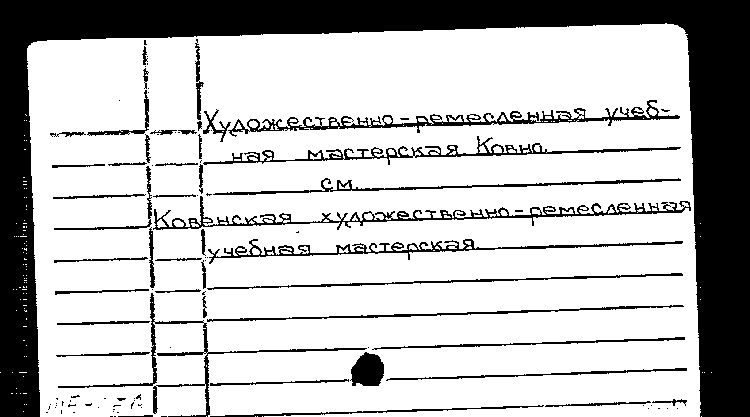 Художественно-ремесленная учеб-
ная мастерская. Ковно.
см.
Ковенская художественно-ремесленная
учебная мастерская.